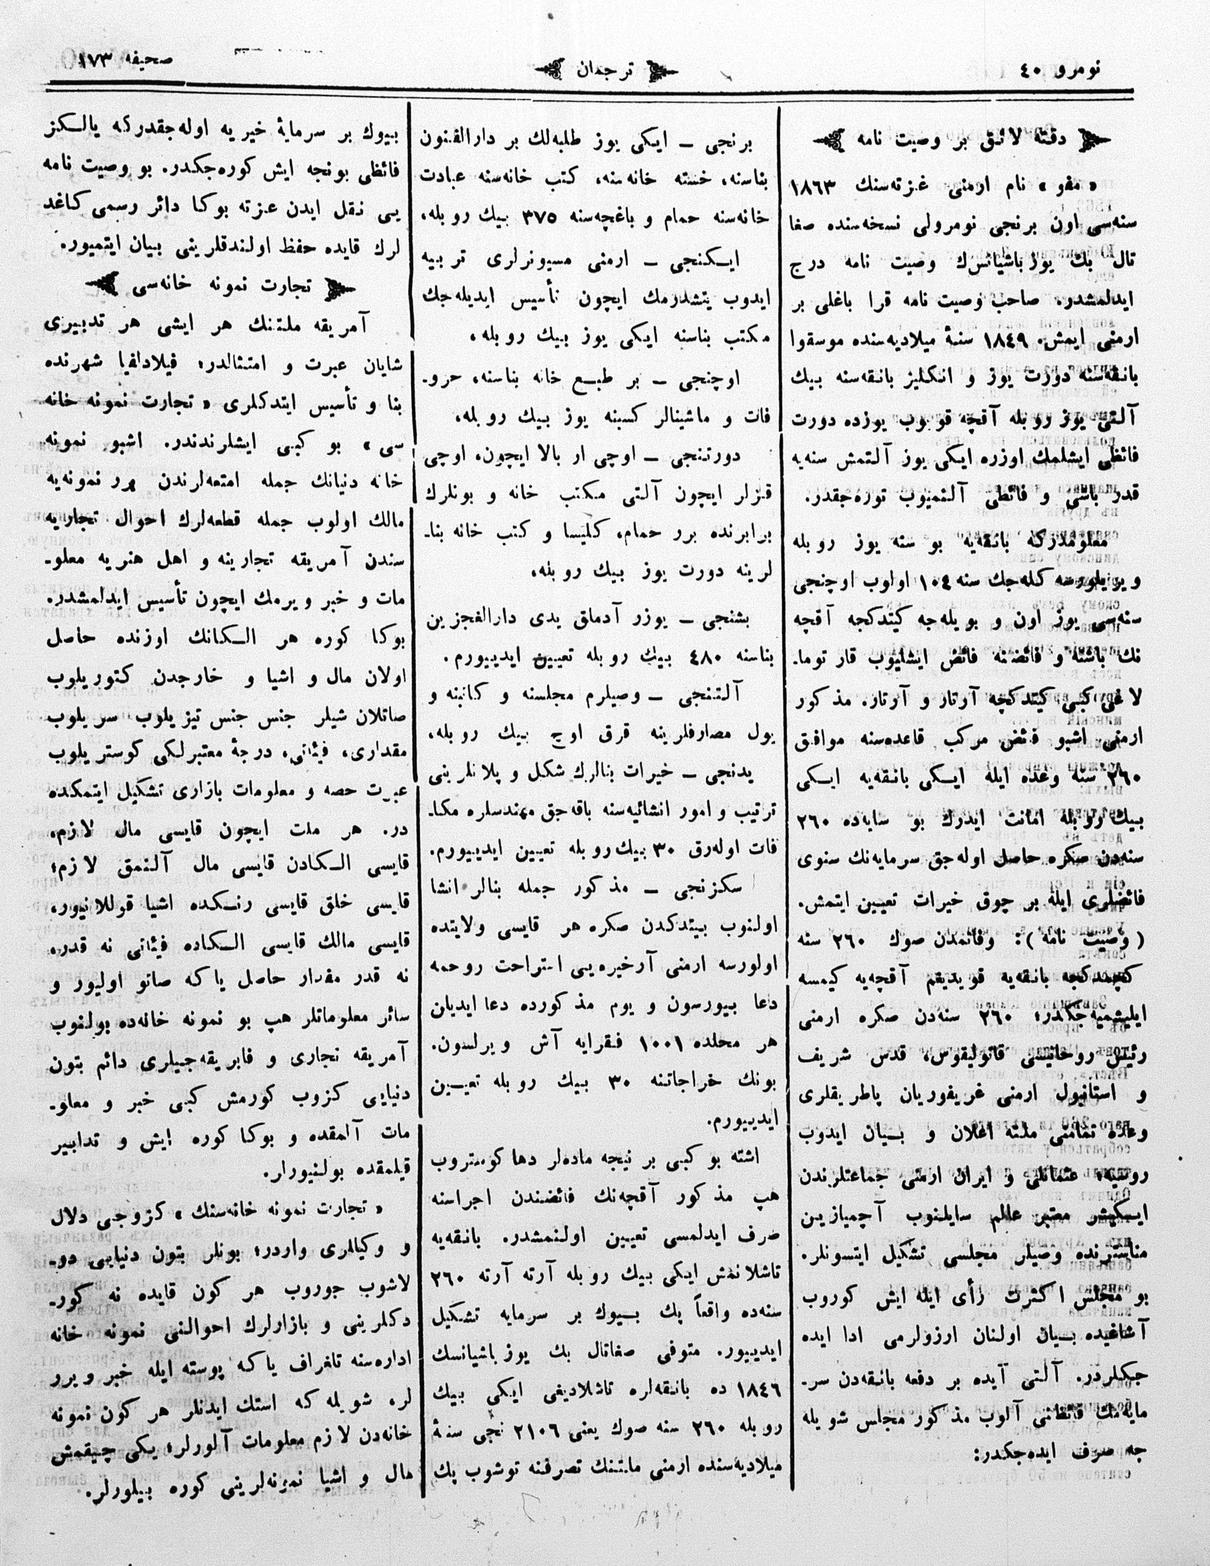 نومرو ٤٠
ترجمان
صحيفه ١٧٣
دقته لائق بر وصيت نامه
« مفو » نام ارمنى غزته‌سنك ١٨٦٣
سنه‌سى اون برنجى نومرولى نسخه‌سنده صفا
تال بك يوزباشيانس‌ك وصيت نامه درج
ايدلمشدر. صاحب وصيت نامه قرا باغلى بر
ارمنى ايمش. ١٨٤٩ سنهٔ ميلاديه‌سنده موسقوا
بانقه‌سنه دورت يوز و انكليز بانقه‌سنه بيك
آلتى يوز روبله آقچه قويوب يوزده دورت
فائظى ايشلمك اوزره ايكى يوز آلتمش سنه‌يه
قدر باشى و فائظى آلنميوب توره‌جقدر.
معلومدركه بانقه‌يه بو سنه يوز روبله
ويريلورسه كله‌جك سنه ١٠٤ اولوب اوچنجى
سنه‌سى يوز اون و بويله‌جه كيتدكجه آقچه
نك باشنه و فائضنه فائض ايشليوب قارتوما-
لاغى كبى كيتدكچه آرتار و آرتار. مذكور
ارمنى اشبو فائض مركب قاعده‌سنه موافق
٢٦٠ سنه وعده ايله ايكى بانقه‌يه ايكى
بيك روبله امانت ايدرك بو سايه‌ده ٢٦٠
سنه‌دن صكره حاصل اوله‌جق سرمايه‌نك سنوى
فائضلرى ايله بر چوق خيرات تعيين ايتمش.
( وصيت نامه ): وفاتمدن صوك ٢٦٠ سنه
كچمدكجه بانقه‌يه قويديقم آقچه‌يه كيمسه
ايليشميه‌جكدر؛ ٢٦٠ سنه‌دن صكره ارمنى
رئيس روحانيسى قاتوليقوس، قدس شريف
و استانبول ارمنى غريغوريان پاطريقلرى
وعده تمامنى ملته اعلان و بيان ايدوب
روسيه، عثمانلى و ايران ارمنى جماعتلرندن
ايكيشر معتبر عالم سايلنوب آچميازين
مناستنرنده وصيلر مجلسى تشكيل ايتسونلر.
بو مجلس اكثرت رأى ايله ايش كوروب
آشاغيده بيان اولنان ارزولرمى ادا ايده
جكلردر. آلتى آيده بر دفعه بانقه‌دن سر-
مايه‌نك فائظنى آلوب مذكور مجلس شويله
جه صرف ايده‌جكدر:
برنجى – ايكى يوز طلبه‌لك بر دارالفنون
بناسنه، خسته خانه‌سنه، كتب خانه‌سنه عبادت
خانه‌سنه حمام و باغچه‌سنه ٣٧٥ بيك روبله،
ايكنجى – ارمنى مسيونرلرى تربيه
ايدوب يتشدرمك ايچون تأسيس ايديله‌جك
مكتب بناسنه ايكى يوز بيك روبله،
اوچنجى – بر طبع خانه بناسنه، حرو-
فات و ماشينالر كسبنه يوز بيك روبله،
دورتنجى – اوچى ار بالا ايچون، اوچى
قزلر ايچون آلتى مكتب خانه و بونلرك
برابرنده برر حمام، كليسا و كتب خانه بنا-
لرينه دورت يوز بيك روبله،
بشنجى – يوزر آدملق يدى دارالعجزين
بناسنه ٤٨٠ بيك روبله تعيين ايدييورم.
آلتنجى – وصيلرم مجلسنه و كاتبنه و
يول مصارفلرينه قرق اوچ بيك روبله،
يدنجى – خيرات بنالرك شكل و پلانلرينى
ترتيب و امور انشائيه‌سنه باقه‌جق مهندسلره مكا-
فات اوله‌رق ٣٠ بيك روبله تعيين ايدييورم.
سكزنجى – مذكور جمله بنالر انشا
اولنوب بيتدكدن صكره هر قايسى ولايتده
اولورسه ارمنى آرخيره‌يى استراحت روحمه
دعا بيورسون و يوم مذكورده دعا ايديلن
هر محلده ١٠٠١ فقرايه آش ويرلسون.
بونك خراجاتنه ٣٠ بيك روبله تعيين
ايدييورم.
اشته بو كبى بر نيجه ماده‌لر دها كوستروب
هپ مذكور آقچه‌نك فائضندن اجراسنه
صرف ايدلمسى تعيين اولنمشدر. بانقه‌يه
تاشلانمش ايكى بيك روبله آرته آرته ٢٦٠
سنه‌ده واقعاً پك بيوك بر سرمايه تشكيل
ايدييور. متوفى صفاتال بك يوزباشيانسك
١٨٤٦ ده بانقه‌لره تاشلاديغى ايكى بيك
روبله ٢٦٠ سنه صوك يعنى ٢١٠٦ نجى سنهٔ
ميلاديه‌سنده ارمنى ملتنك تصرفنه توشوب پك
بيوك بر سرمايهٔ خيريه اوله‌جقدركه يالكز
فائظى بونجه ايش كوره‌جكدر. بو وصيت نامه
يى نقل ايدن غزته بوكا دائر رسمى كاغد
لرك قايده حفظ اولندقلرينى بيان ايتميور.
تجارت نمونه خانه‌سى
آمريقه ملتنك هر ايشى هر تدبيرى
شايان عبرت و امتثالدر؛ فيلادلفيا شهرنده
بنا و تأسيس ايتدكلرى « تجارت نمونه خانه
سى » بو كبى ايشلرندندر. اشبو نمونه
خانه دنيانك جمله امتعه‌لرندن برر نمونه‌يه
مالك اولوب جمله قطعه‌لرك احوال تجاريه
سندن آمريقه تجارينه و اهل هنريه معلو-
مات و خبر ويرمك ايچون تأسيس ايدلمشدر.
بوكا كوره هر الكانك اوزنده حاصل
اولان مال و اشيا و خارجدن كتوريلوب
صاتلان شيلر جنس جنس تيزيلوب سريلوب
مقدارى، فيئانى، درجهٔ معتبرلكى كوستريلوب
عبرت حصه و معلومات بازارى تشكيل ايتمكده
در. هر ملت ايچون قايسى مال لازم،
قايسى الكادن قايسى مال آلنمق لازم؛
قايسى خلق قايسى رنكده اشيا قوللانيور،
قايسى مالك قايسى الكاده فيئانى نه قدر،
نه قدر مقدار حاصل ياكه صاتو اوليور و
سائر معلوماتلر هپ بو نمونه خانه‌ده بولنوب
آمريقه تجارى و فابريقه‌جيلرى دائم بتون
دنيايى كزوب كورمش كبى خبر و معلو-
مات آلمقده و بوكا كوره ايش و تدابير
قيلمقده بولنيورلر.
« تجارت نمونه خانه‌سنك » كزوجى دلال
و وكيللرى واردر؛ بونلر بتون دنيايى دو-
لاشوب جوروب هر كون قايده نه كور-
دكلرينى و بازارلرك احوالنى نمونه خانه
اداره‌سنه تلغراف ياكه پوسته ايله خبر ويرو
لر، شويله‌كه استك ايدنلر هر كون نمونه
خانه‌دن لازم معلومات آلورلر، يكى چيقمش
مال و اشيا نمونه‌لرينى كوره بيلورلر.